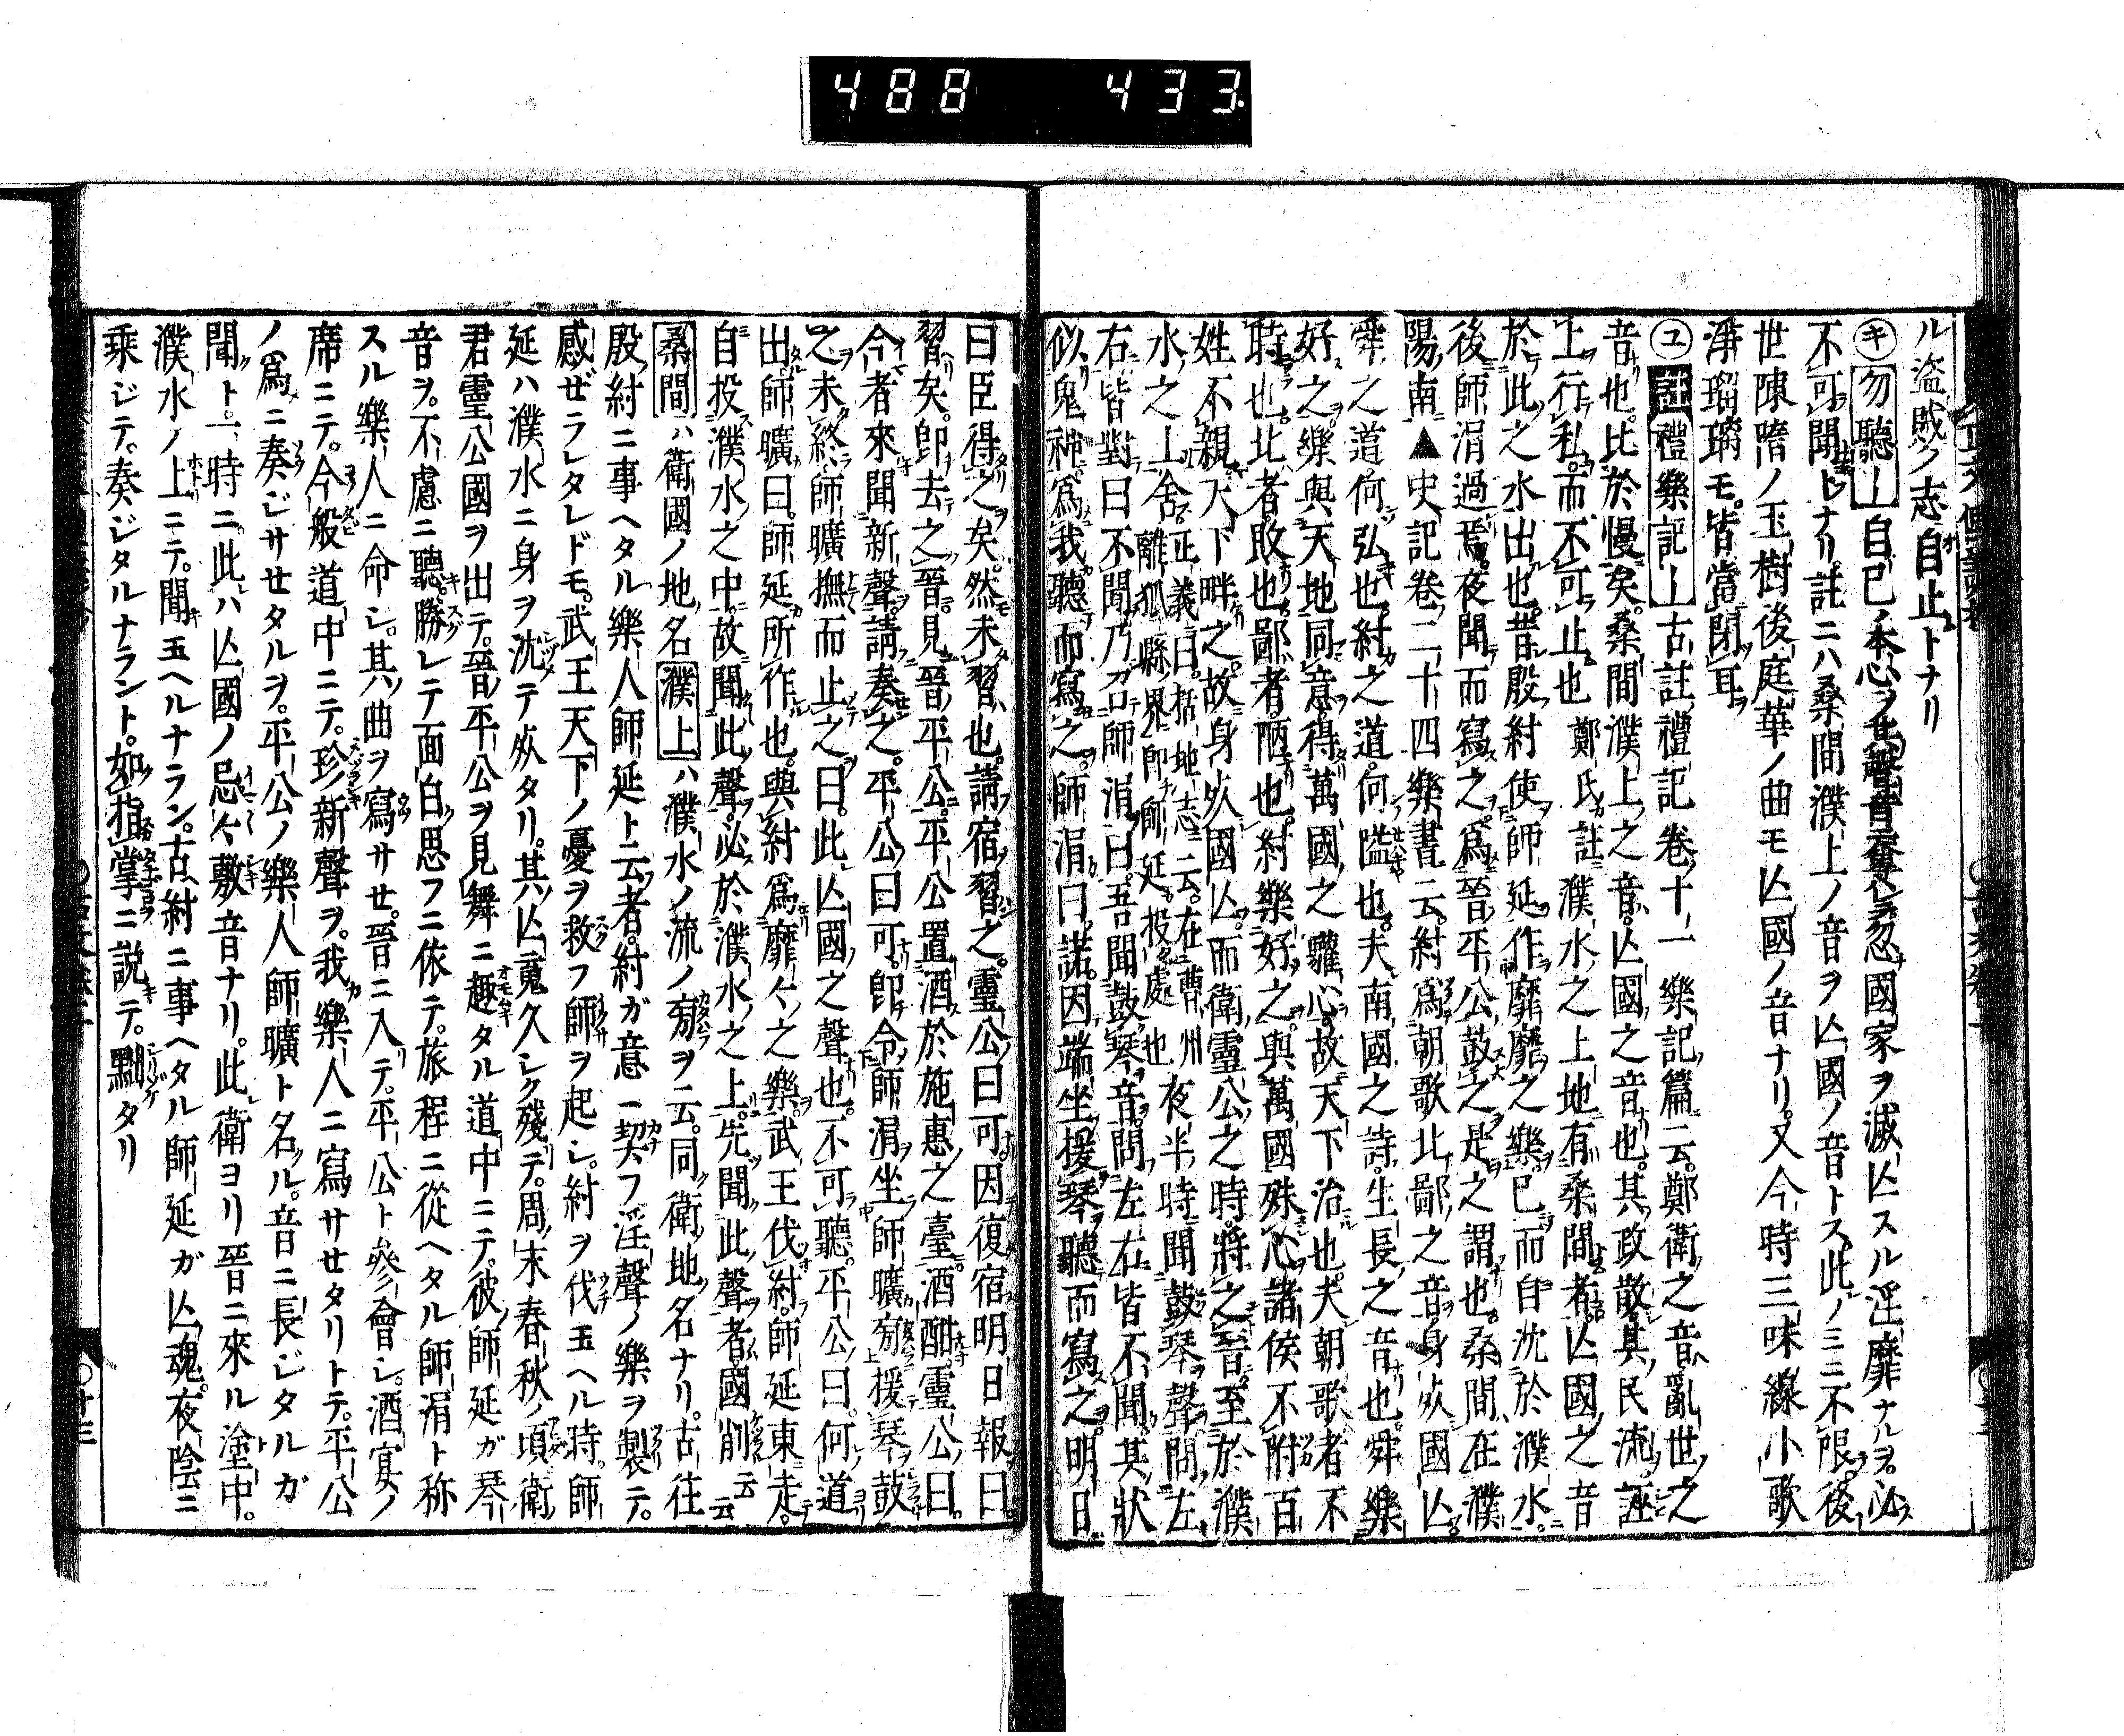 488 433.
ル盗賊ノ志自止トナリ
㋖勿聽ー自己ノ本心ヲ國家ヲ滅亾スル淫靡ナルヲ必
不可聞トナリ。註ニハ桑間濮上ノ音ヲ亾國ノ音トス此ノミニ不限後
世陳隋ノ玉樹後庭華ノ曲モ亾國ノ音ナリ。又今時三味線小歌
淨瑠璃モ。皆當閉耳
㋴註禮樂記ー古註禮記卷十一樂記篇云。鄭衛之音亂世之
音也。比於慢矣。桑間濮上之音。亾國之音也。其政散其民流。誣
上行私。而不可止也 鄭氏註濮水之上地有桑間者亾國之音
於此之水出也。昔殷紂使師延作靡靡之樂已而自沈於濮水。
後師涓過焉。夜聞而寫之。爲晉平公鼓之是之謂也。桑間在濮
陽南▲史記卷二十四樂書云。紂爲朝歌北鄙之音身死國亾。
舜之道何弘也。紂之道何隘也。夫南國之詩。生長之音也。舜樂
好之。樂與天地同意。得萬國之驩心。故天下治也。夫朝歌者不
時也。北者敗也。鄙者陋也。紂樂好之。與萬國殊心諸侯不附百
姓不親。天下畔之。故身死國亾。而衛靈公之時。將之晉。至於濮
水之上舍 正義曰。括地志云。在曹州離狐縣界即師延投處也 夜半時聞鼓琴聲問左
右皆對曰不聞乃召師涓曰。吾聞鼓琴音問左右皆不聞其狀
似鬼神。爲我聽而寫之。師涓曰。諾。因端坐援琴聽而寫之。明日
曰臣得之矣。然未習也。請宿習之。靈公曰可。因復宿明日報曰。
習矣。即去之晉。見晉平公。平公置酒於施惠之臺。酒酣靈公曰。
今者來聞新聲。請奏之。平公曰可。即令師涓坐師曠旁援琴鼓
之未終。師曠撫而止之曰。此亾國之聲也。不可聽。平公曰。何道
出師曠曰。師延所作也。與紂爲靡々之樂。武王伐紂。師延東走。
自投濮水之中。故聞此聲。必於濮水之上。先聞此聲者。國削云云
桑間ハ衛國ノ地名濮上ハ濮水ノ流ノ旁ヲ云。同衛地ノ名ナリ。古往
殷紂ニ事ヘタル樂人師延ト云者。紂ガ意ニ契フ淫聲ノ樂ヲ製テ。
感ゼラレタレドモ。武王天下ノ憂ヲ救フ師ヲ起シ。紂ヲ伐玉ヘル時。師
延ハ濮水ニ身ヲ沈テ死タリ。其亾䰟久シク殘テ。周末春秋ノ頃衛
君靈公國ヲ出テ。晉平公ヲ見舞ニ趣タル道中ニテ。彼師延ガ琴
音ヲ。不慮ニ聽。勝レテ面白思フニ依テ。旅程ニ從ヘタル師涓ト称
スル樂人ニ命シ。其曲ヲ寫サセ。晉ニ入テ。平公ト參會シ。酒宴ノ
席ニテ。今般道中ニテ。珍新聲ヲ。我樂人ニ寫サセタリトテ。平公
ノ爲ニ奏ジサセタルヲ。平公ノ樂人師曠ト名ル。音ニ長ジタルガ
聞ト一時ニ。此ハ亾國ノ忌々敷音ナリ。此衛ヨリ晉ニ來ル塗中。
濮水ノ上ニテ。聞玉ヘルナラン。古紂ニ事ヘタル師延ガ亾魂。夜陰ニ
乘ジテ。奏ジタルナラント。如指掌ニ説テ。黜タリ